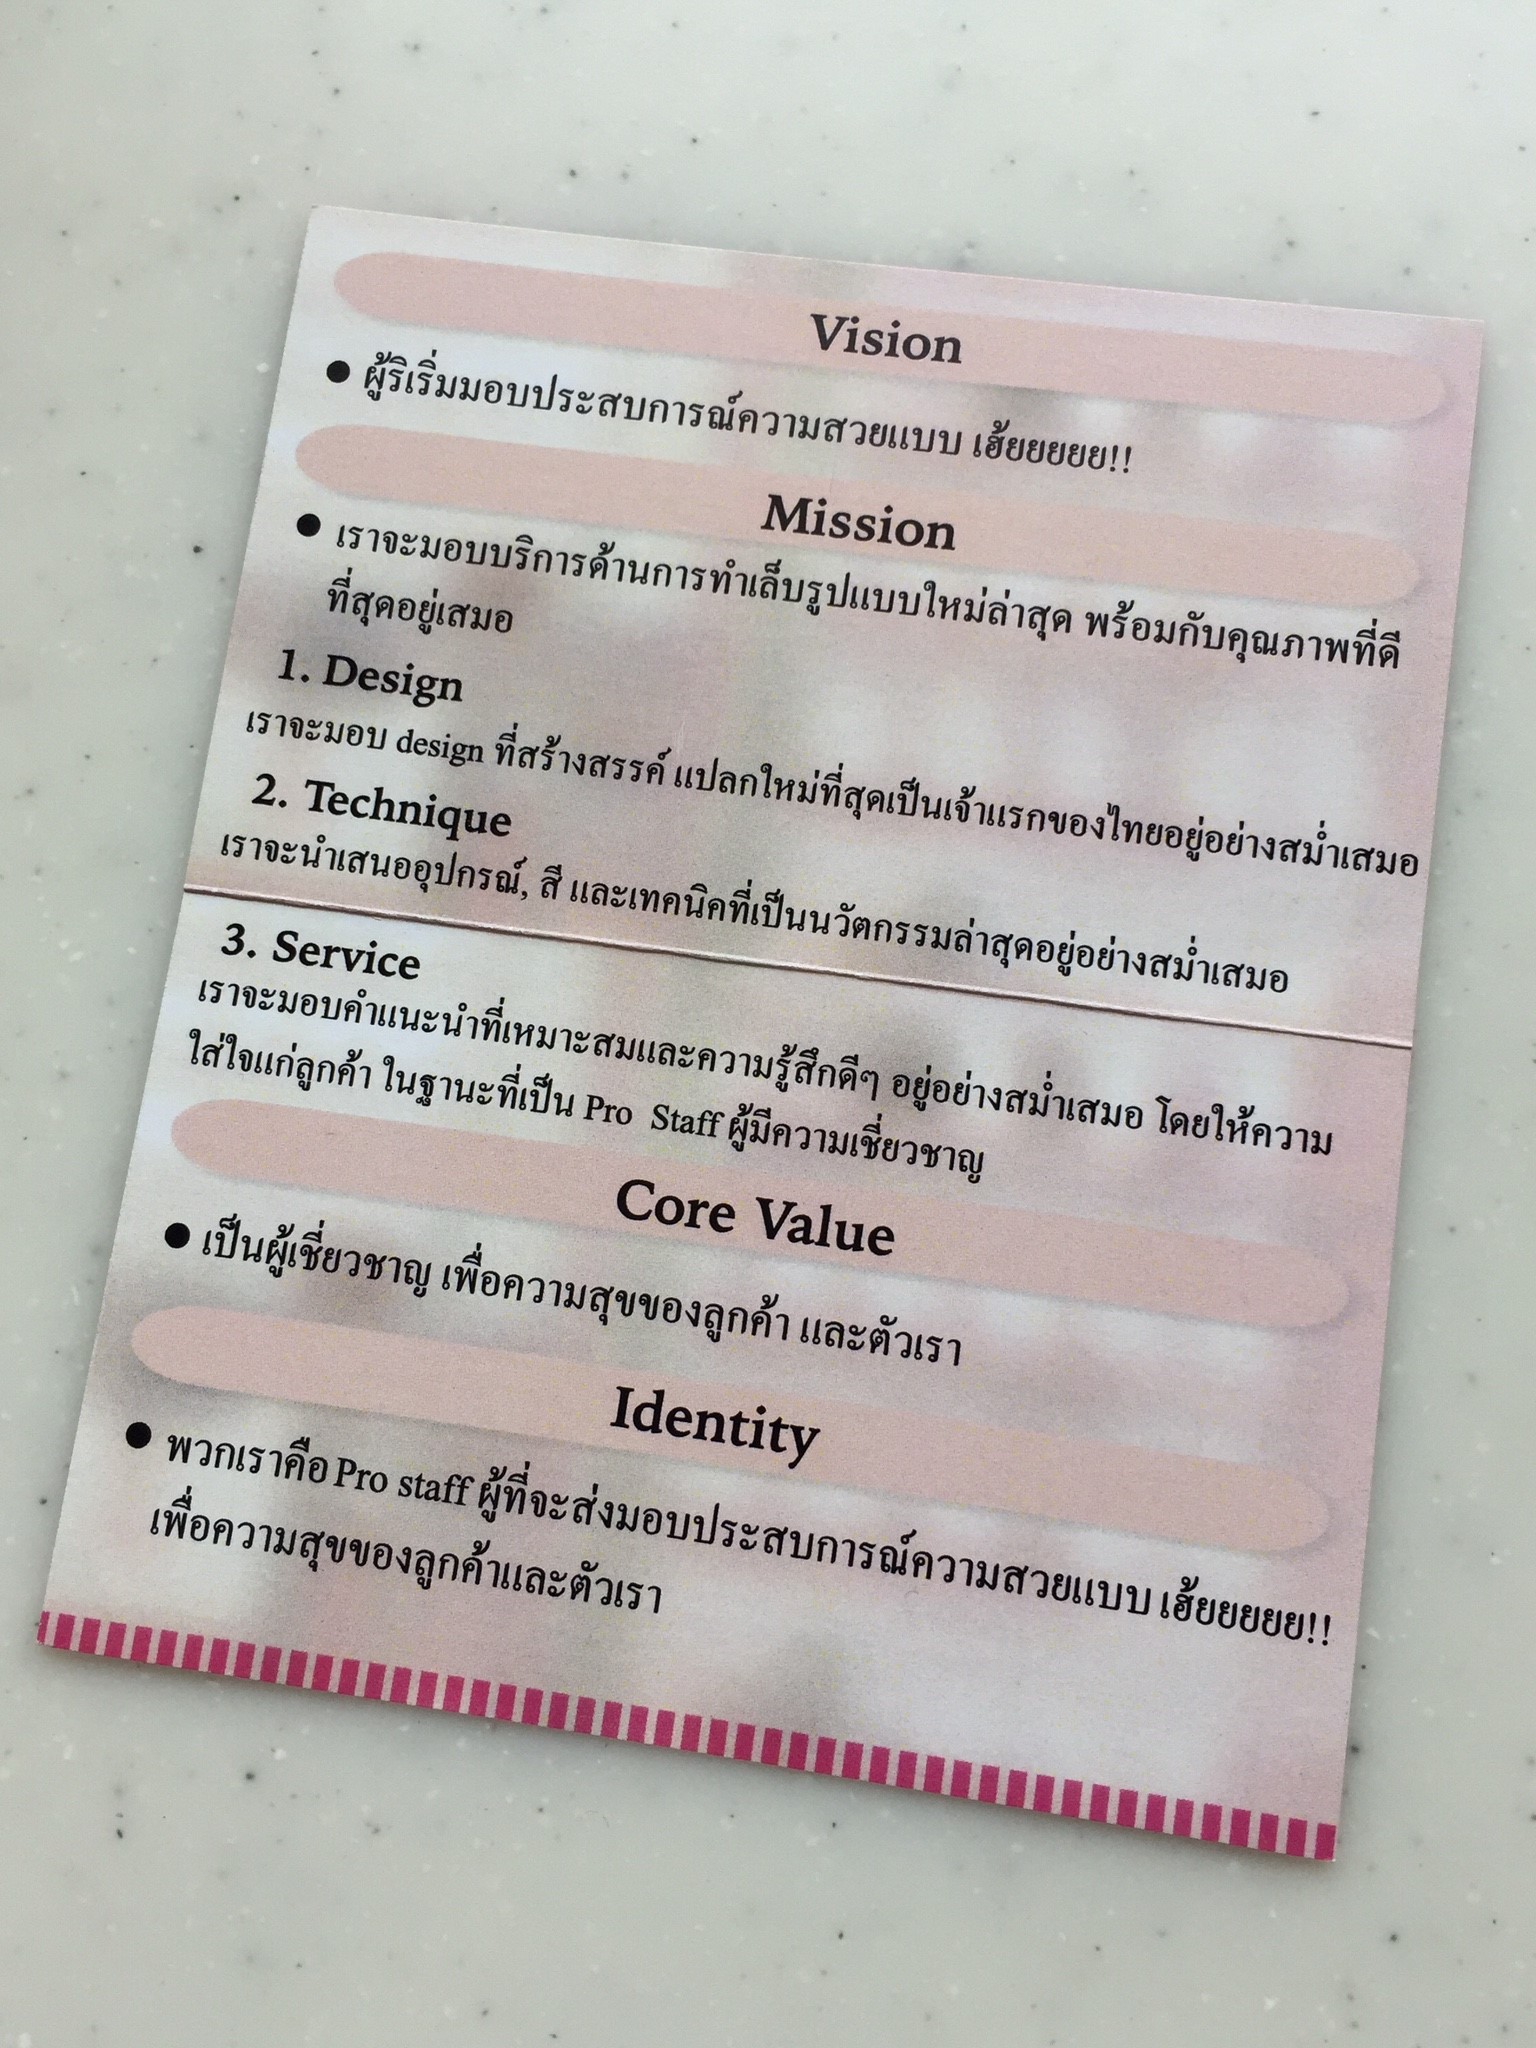 Vision
● ผู้ริเริ่มมอบประสบการณ์ความสวยแบบ เฮ้ยยยยย!!
Mission
● เราจะมอบบริการด้านการทำเล็บรูปแบบใหม่ล่าสุด พร้อมกับคุณภาพที่ดี
ที่สุดอยู่เสมอ
1. Design
เราจะมอบ design ที่สร้างสรรค์ แปลกใหม่ที่สุดเป็นเจ้าแรกของไทยอยู่อย่างสม่ำเสมอ
2. Technique
เราจะนำเสนออุปกรณ์, สี และเทคนิคที่เป็นนวัตกรรมล่าสุดอยู่อย่างสม่ำเสมอ
3. Service
เราจะมอบคำแนะนำที่เหมาะสมและความรู้สึกดีๆ อยู่อย่างสม่ำเสมอ โดยให้ความ
ใส่ใจแก่ลูกค้า ในฐานะที่เป็น Pro Staff ผู้มีความเชี่ยวชาญ
Core Value
● เป็นผู้เชี่ยวชาญ เพื่อความสุขของลูกค้า และตัวเรา
Identity
● พวกเราคือ Pro staff ผู้ที่จะส่งมอบประสบการณ์ความสวยแบบ เฮ้ยยยยย!!
เพื่อความสุขของลูกค้าและตัวเรา